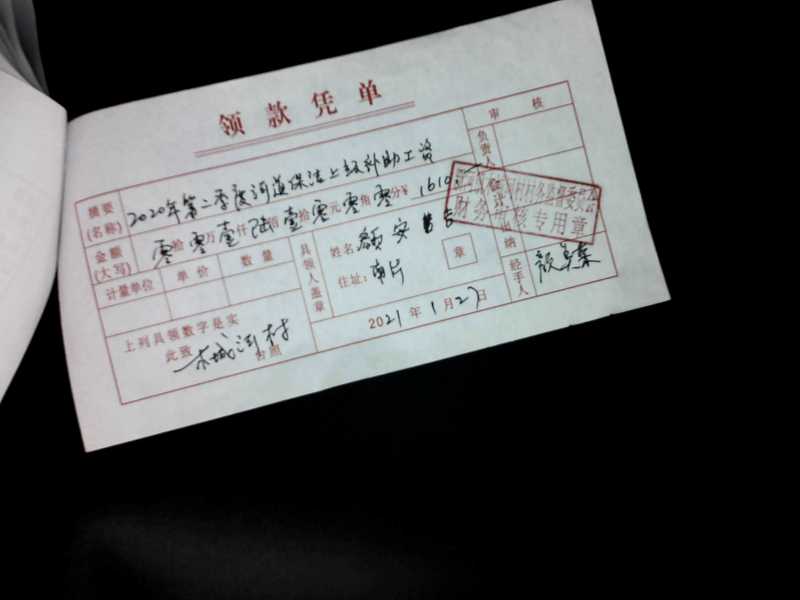 领款凭单
审核
摘要(名称) 2020年第二季度河道保洁上级补助工资
负责人
金额(大写) 零拾零万壹仟陆佰壹拾零元零角零分¥1610.
会计
财务审核专用章
出纳
计量单位 单价 数量
具领人盖章
姓名: 安
住址: 南片
章
经手人
上列具领数字是实
此致
村
台照
2021年1月27日